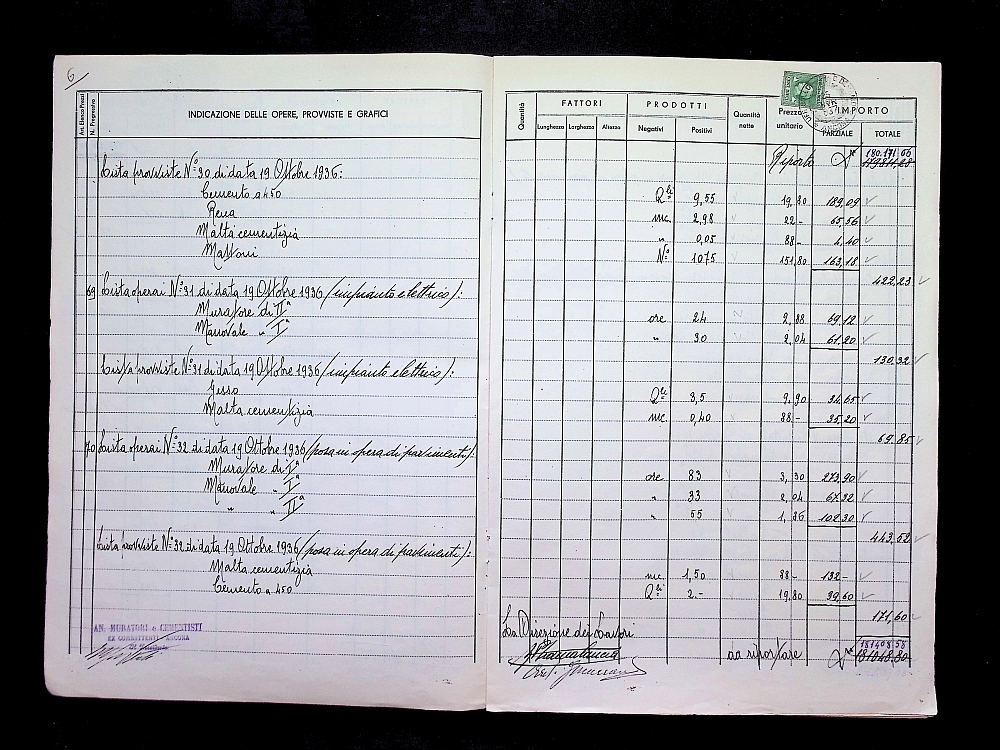 6
Art. Elenco Prezzi
N. Progressivo
INDICAZIONE DELLE OPERE, PROVVISTE E GRAFICI
Quantità
FATTORI
Lunghezza Larghezza Altezza
PRODOTTI
Negativi Positivi
Quantità nette
Prezzo unitario
IMPORTO
PARZIALE TOTALE
180.171,66
Riporto 179811,28
Lista provviste N° 30 di data 19 Ottobre 1936:
Cemento a 450 Q.li 9,55 19,80 189,09
Rena mc. 2,98 22- 65,56
Malta cementizia " 0,05 88- 4,40
Mattoni N° 1075 151,80 163,18
422,23
69 Lista operai N° 31 di data 19 Ottobre 1936 (impianto elettrico):
Muratore di IIª ore 24 2,88 69,12
Manovale " Iª " 30 2,04 61,20
130,32
Lista provviste N° 31 di data 19 Ottobre 1936 (impianto elettrico):
Gesso Q.li 3,5 9,90 34,65
Malta cementizia mc. 0,40 88- 35,20
69,85
70 Lista operai N° 32 di data 19 Ottobre 1936 (posa in opera di pavimenti):
Muratore di Iª ore 83 3,30 273,90
Manovale " Iª " 33 2,04 67,32
" " IIª " 55 1,86 102,30
443,52
Lista provviste N° 32 di data 19 Ottobre 1936 (posa in opera di pavimenti):
Malta cementizia mc. 1,50 88- 132-
Cemento a 450 Q.li 2.- 19,80 39,60
171,60
AN. MURATORI e CEMENTISTI
EX COMBATTENTI ANCONA
La Direzione dei Lavori
181408,58
da riportare 181048,80